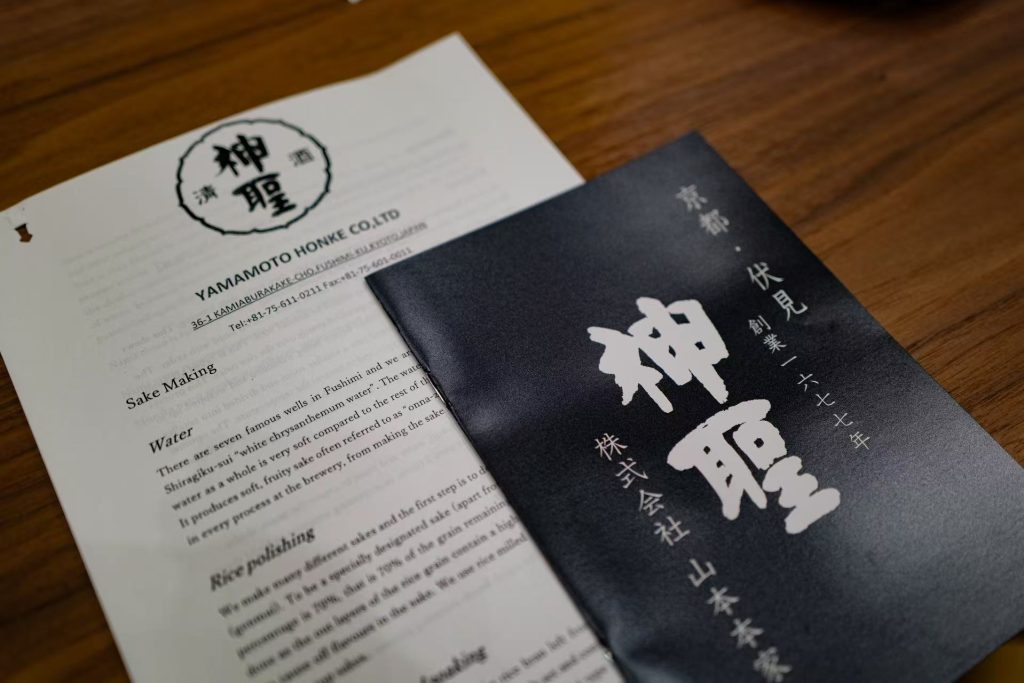 神聖
清
酒
YAMAMOTO HONKE CO,LTD
36-1 KAMIABURAKAKE-CHO,FUSHIMI-KU,KYOTO,JAPAN
Tel:+81-75-611-0211 Fax:+81-75-601-0011
Sake Making
Water
There are seven famous wells in Fushimi and we ar
Shiragiku-sui "white chrysanthemum water". The wate
water as a whole is very soft compared to the rest of th
It produces soft, fruity sake often referred to as "onna-
in every process at the brewery, from making the sake
Rice polishing
We make many different sakes and the first step is to d
To be a specially designated sake (apart fro
percentage is 70%, that is 70% of the grain remaining
the out layers of the rice grain contain a high
cause off flavours in the sake. We use rice milled
soaking
京都・伏見
創業一六七七年
神聖
株式会社 山本本家